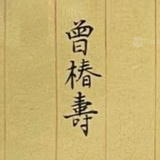 曾椿壽